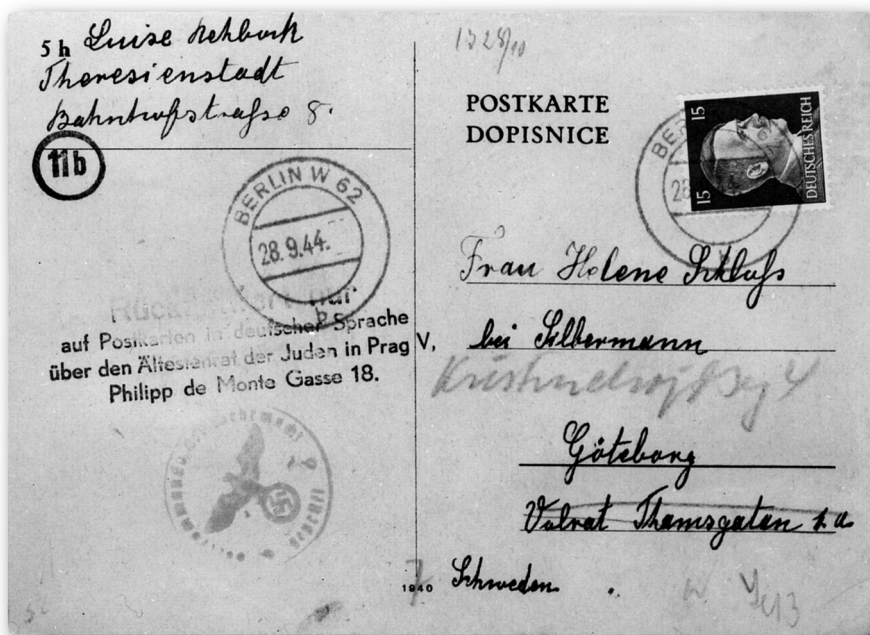 5 h Luise Rehbock
Theresienstadt
Bahnhofstraße 8.
11b
BERLIN W 62
28.9.44.
b
Rückantwort nur
auf Postkarten in deutscher Sprache
über den Ältestenrat der Juden in Prag V,
Philipp de Monte Gasse 18.
POSTKARTE
DOPISNICE
15 15
DEUTSCHES REICH
Frau Helene Schloß
bei Silbermann
4
Göteborg
Valrat Thamsgatan
Schweden
1940